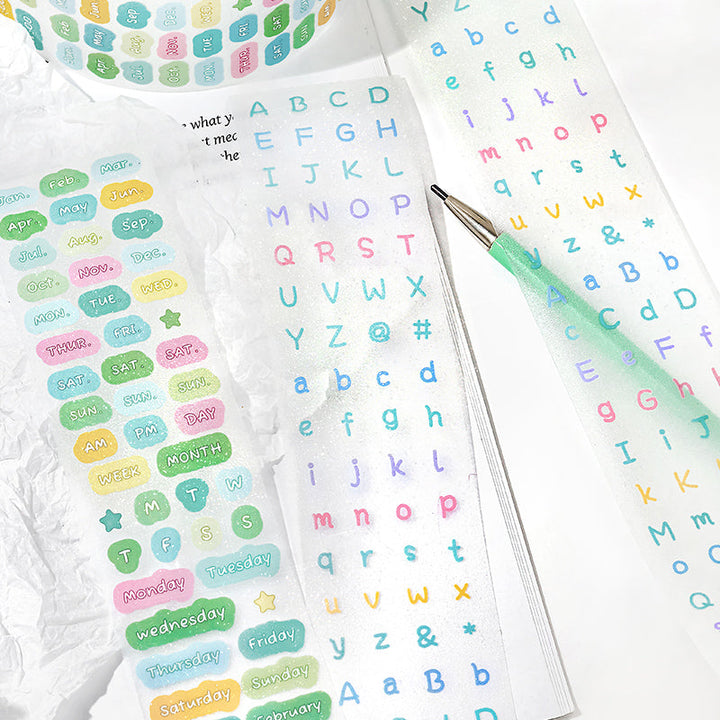 Sep
Nov. TUE. FRI. SAT.
Oct THUR. SAT. SUN.
what y
t mec
he
Jan. Feb. Mar.
Apr. May Jun.
Jul. Aug. Sep.
Oct. Nov. Dec.
MON. TUE. WED.
THUR. FRI.
SAT. SAT. SAT.
SUN. SUN. SUN.
AM PM DAY
WEEK MONTH
M T W
T F S S
Monday Tuesday
wednesday
Thursday Friday
Saturday Sunday
February
A B C D
E F G H
I J K L
M N O P
Q R S T
U V W X
Y Z @ #
a b c d
e f g h
i j k l
m n o p
q r s t
u v w x
y z & *
A a B b
D
Y Z
a b c d
e f g h
i j k l
m n o p
q r s t
u v w x
y z & *
A a B b
c C d D
E e F f
g G h
I i J
k K
M m
o
Q